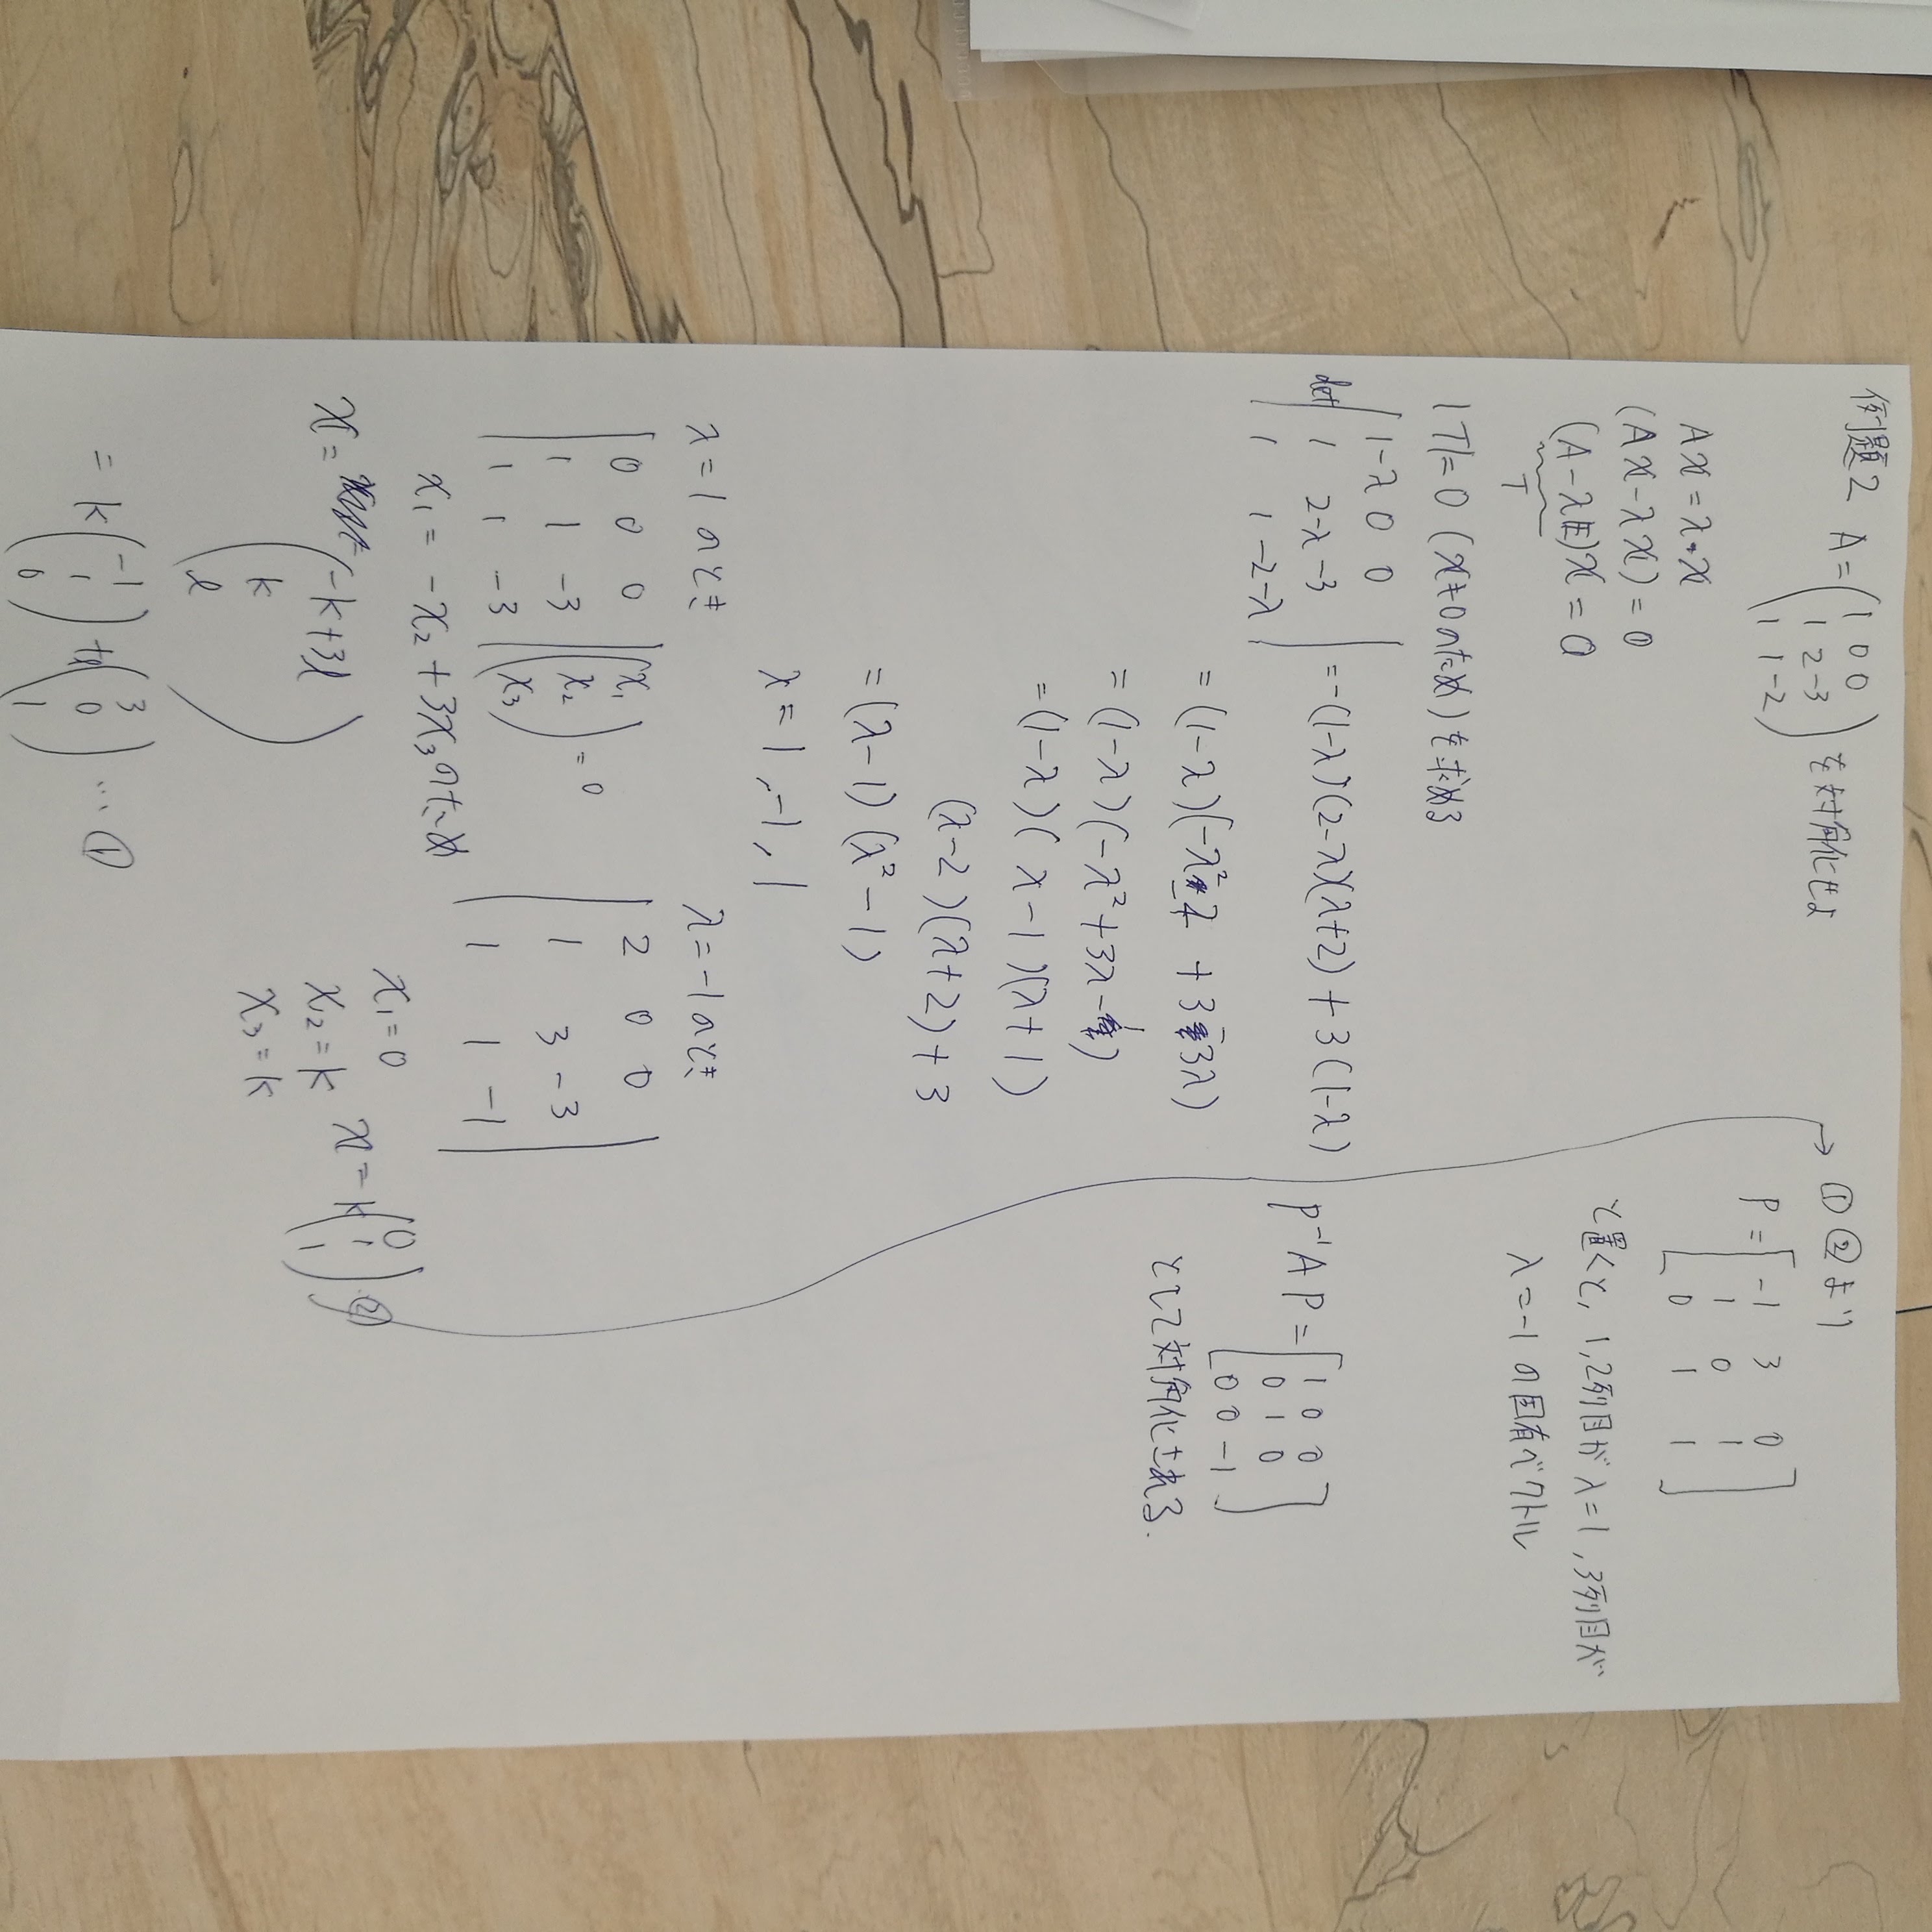 例題2 A=(1 0 0
1 2 -3
1 1 -2) を対角化せよ
Ax = λ・x
(Ax - λx) = 0
(A - λE)x = 0
T
|T| = 0 (x≠0のため) を求める
det | 1-λ 0 0
1 2-λ -3
1 1 -2-λ | = -(1-λ)(2-λ)(λ+2) + 3(1-λ)
= (1-λ)(-λ²
+ 3
3λ)
= (1-λ)(-λ²+3λ-
)
= (1-λ)(λ-1)(λ+1)
(λ-2)(λ+2)+3
= (λ-1)(λ²-1)
λ = 1, -1, 1
λ = 1 のとき
| 0 0 0
1 1 -3
1 1 -3 | (x₁
x₂
x₃) = 0
x₁ = -x₂ + 3x₃ のため
x = (-k+3l
k
l)
= k(-1
1
0) + l(3
0
1) … ①
λ = -1 のとき
| 2 0 0
1 3 -3
1 1 -1 |
x₁ = 0
x₂ = k
x₃ = k
x = k(0
1
1) ②
→ ① ② より
P = [-1 3 0
1 0 1
0 1 1]
と置くと, 1,2列目が λ=1, 3列目が
λ=-1 の固有ベクトル
P⁻¹AP = [1 0 0
0 1 0
0 0 -1]
として対角化される.